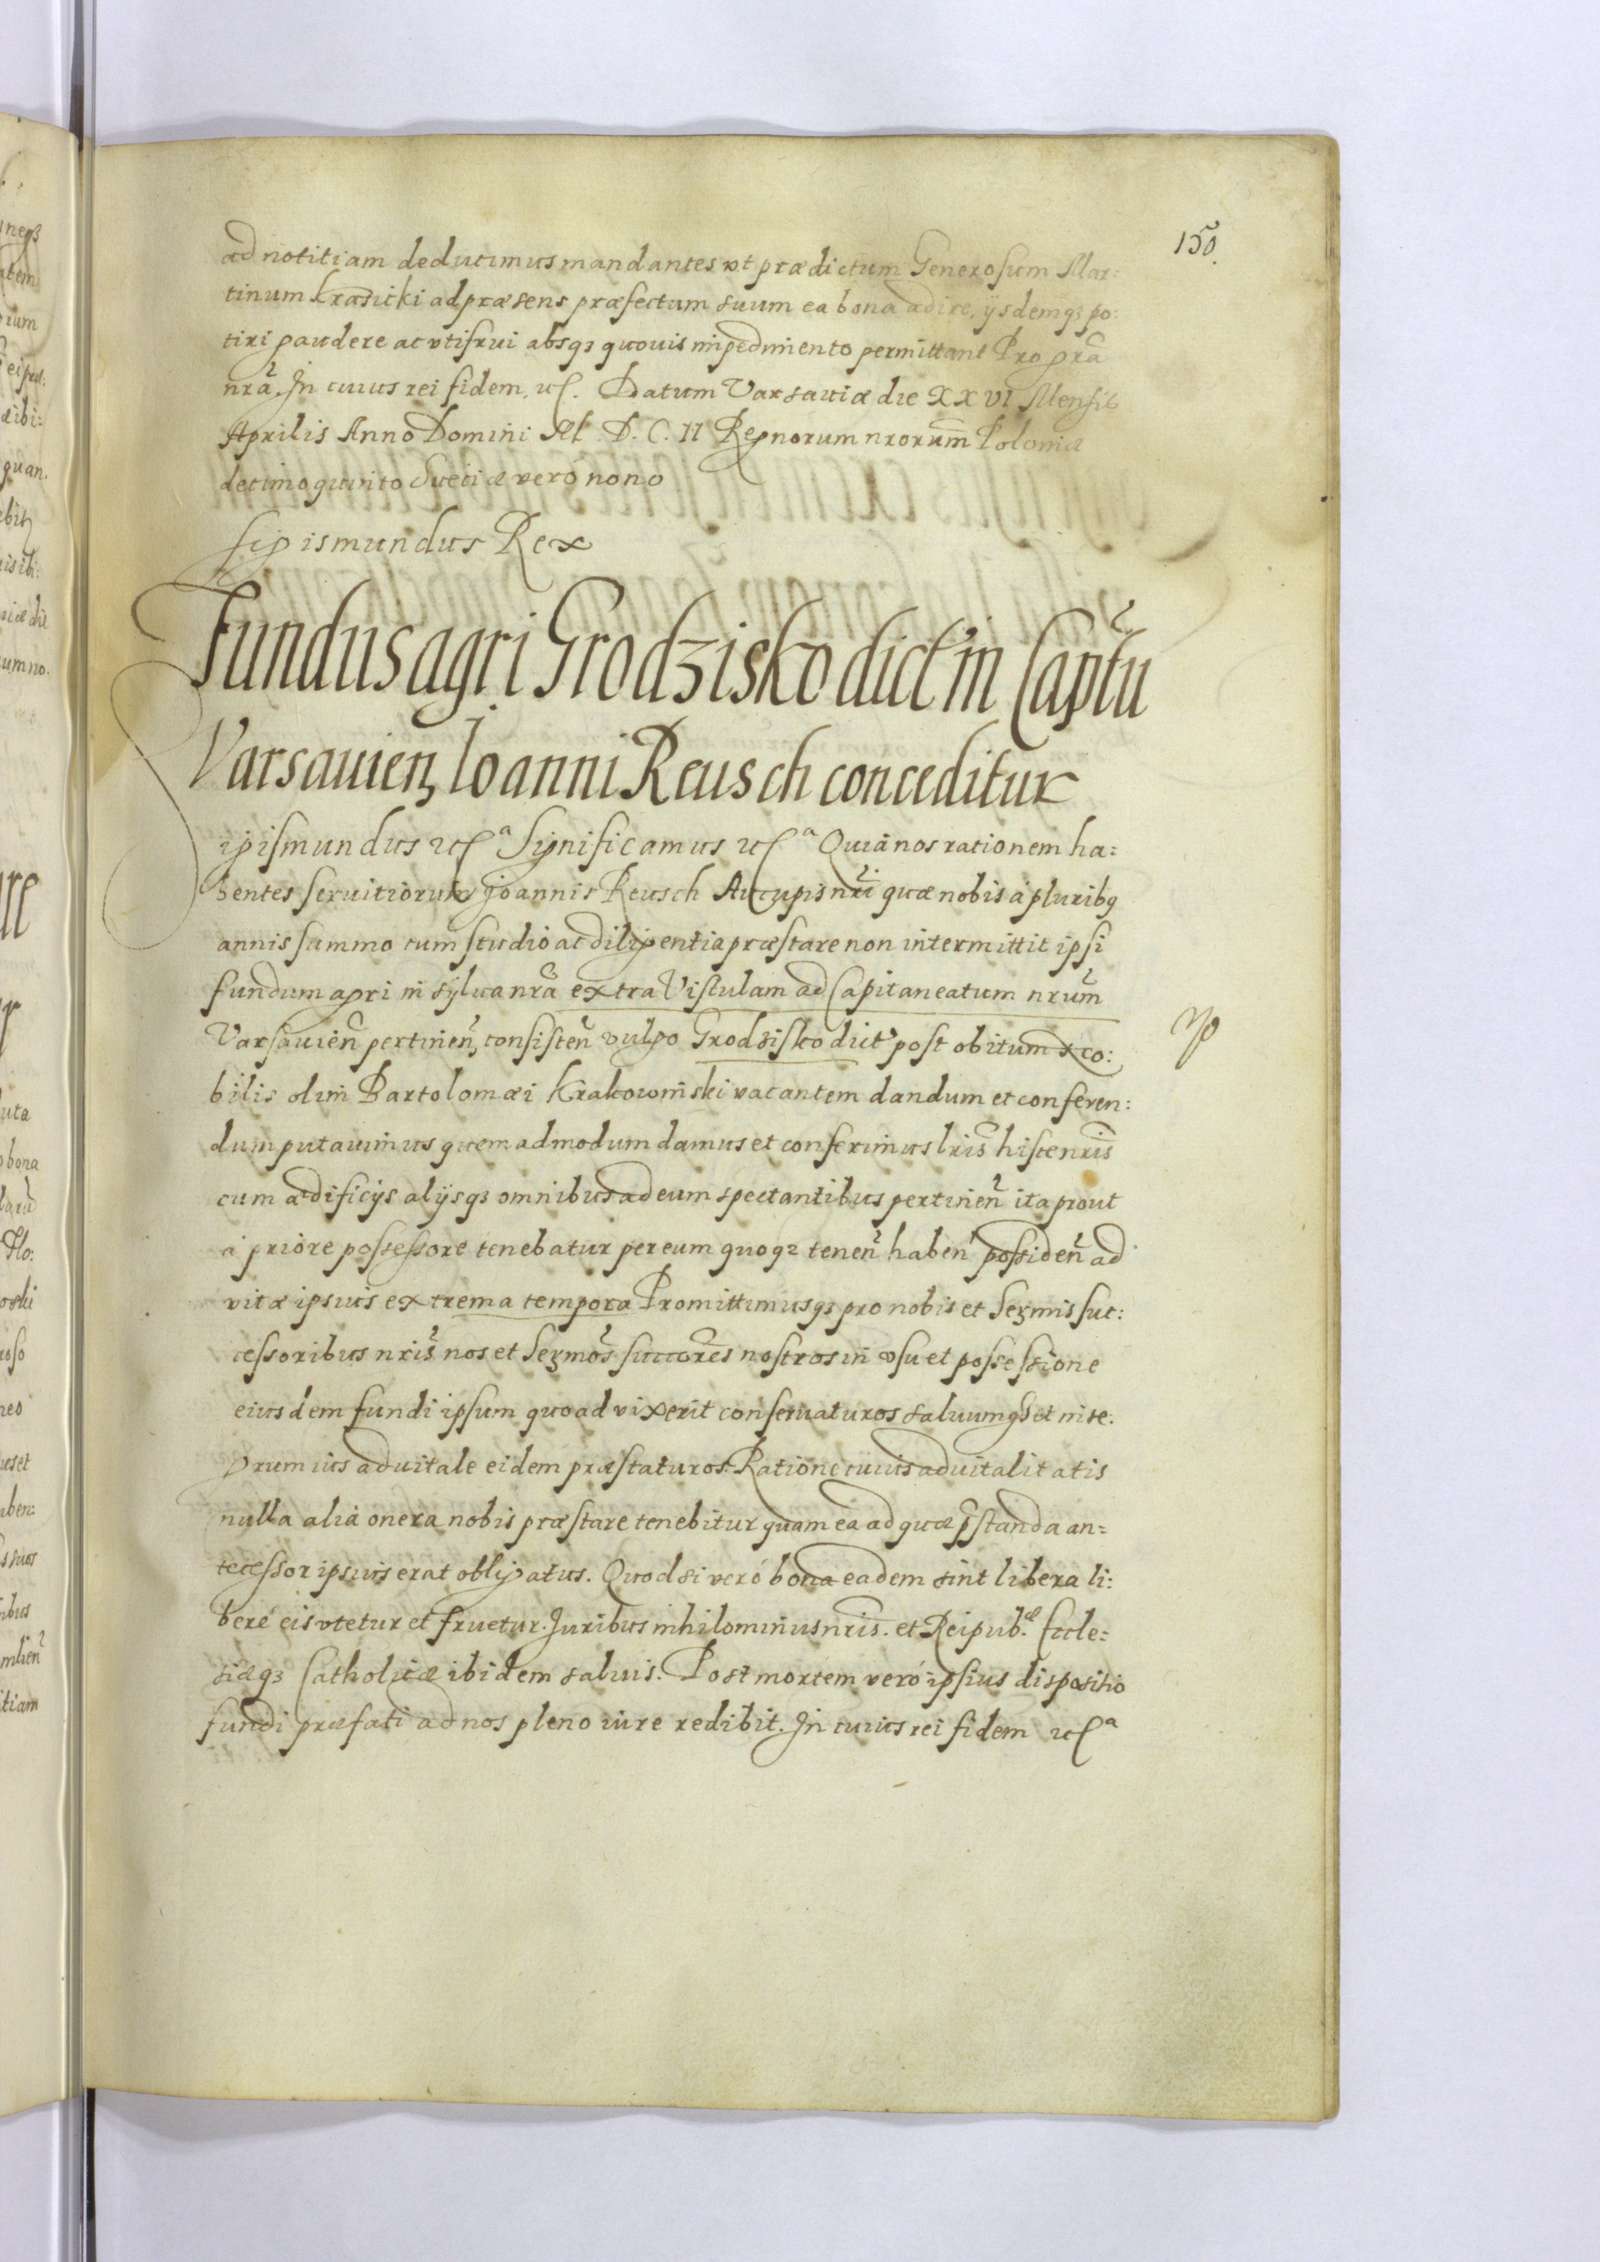 150.
ad notitiam deducimus mandantes vt prædictum Generosum Mar:
tinum Krasicki ad præsens præfectum suum ea bona adire, ijsdemq3 po:
tiri gaudere ac vtifrui absq3 quouis impedimento permittant Pro gra
nra. In cuius rei fidem. etc. Datum Varsauiæ die XXVI Mensis
Aprilis Anno Domini M. D. C. II Regnorum nrorum Poloniæ
decimoquinto Sueciæ veró nono
Sigismundus Rex
Fundus agri Grodzisko dict in Captu
Varsauien Ioanni Reusch conceditur
igismundus etca Significamus etca Quia nos rationem ha:
bentes seruitiorum Joannis Reusch Aucupis nri quæ nobis à pluribq
annis summo cum studio ac diligentia præstare non intermittit ipsi
fundum agri in sylua nra extra Vistulam ad Capitaneatum nrum
Varsauien pertinen, consisten vulgo Grodzisko dict post obitum
bilis olim Bartolomæi Krakowinski vacantem dandum et conferen:
dum putauimus quemadmodum damus et conferimus lris hisce nris
cum ædificijs alijsq3 omnibus ad eum spectantibus pertinen ita prout
à priore possessore tenebatur per eum quoq3 tenen haben possiden ad
vitæ ipsius extrema tempora Promittimusq3 pro nobis et Sermis suc:
cessoribus nris nos et Sermos succores nostros in vsu et possessione
eiusdem fundi ipsum quoad vixerit conseruaturos saluumq3 et inte:
grum ius aduitale eidem præstaturos. Ratione cuius aduitalitatis
nulla alia onera nobis præstare tenebitur quam ea ad quæ pstanda an=
tecessor ipsius erat obligatus. Quod si veró bona eadem sint libera li:
beré eis vtetur et fruetur. Juribus nihilominus nris. et Reipub.æ Eccle=
siæq3 Catholicæ ibidem saluis. Post mortem veró ipsius dispositio
fundi præfati ad nos pleno iure redibit. In cuius rei fidem etca